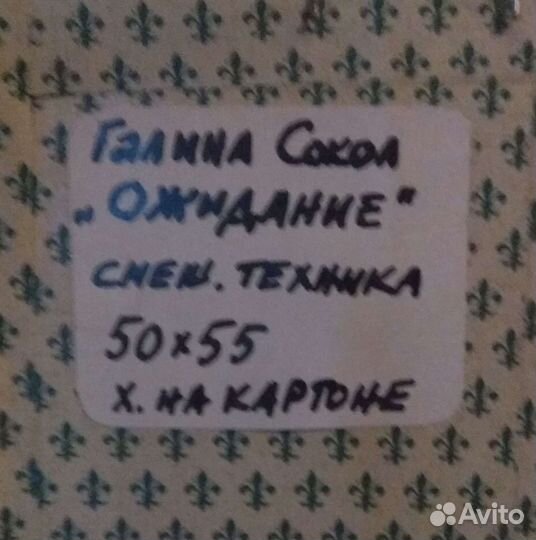 Галина Сокол
„Ожидание"
смеш. техника
50х55
х. на картоне
Avito